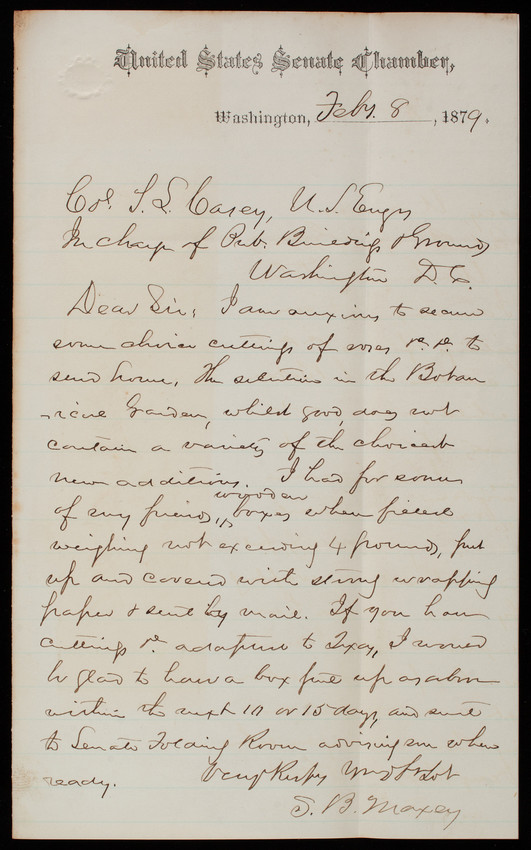 United States Senate Chamber,
Washington, Feby. 8, 1879.
Col. T. L. Casey, U.S. Engrs
In charge of Pub. Buildings & Grounds
Washington D.C.
Dear Sir: I am anxious to secure
some choice cuttings of roses &c. &c. to
send home. The selection in the Botan
-ical Garden, whilst good, does not
contain a variety of the choicest
new additions. I had for some
of my friends, wooden boxes when filled
weighing not exceeding 4 pounds, put
up and covered with strong wrapping
paper & sent by mail. If you have
cuttings &c adapted to Texas, I would
be glad to have a box put up as above
within the next 10 or 15 days, and sent
to Senate Folding Room advising me when
ready. Very Respy Your Obt Svt
S. B. Maxey